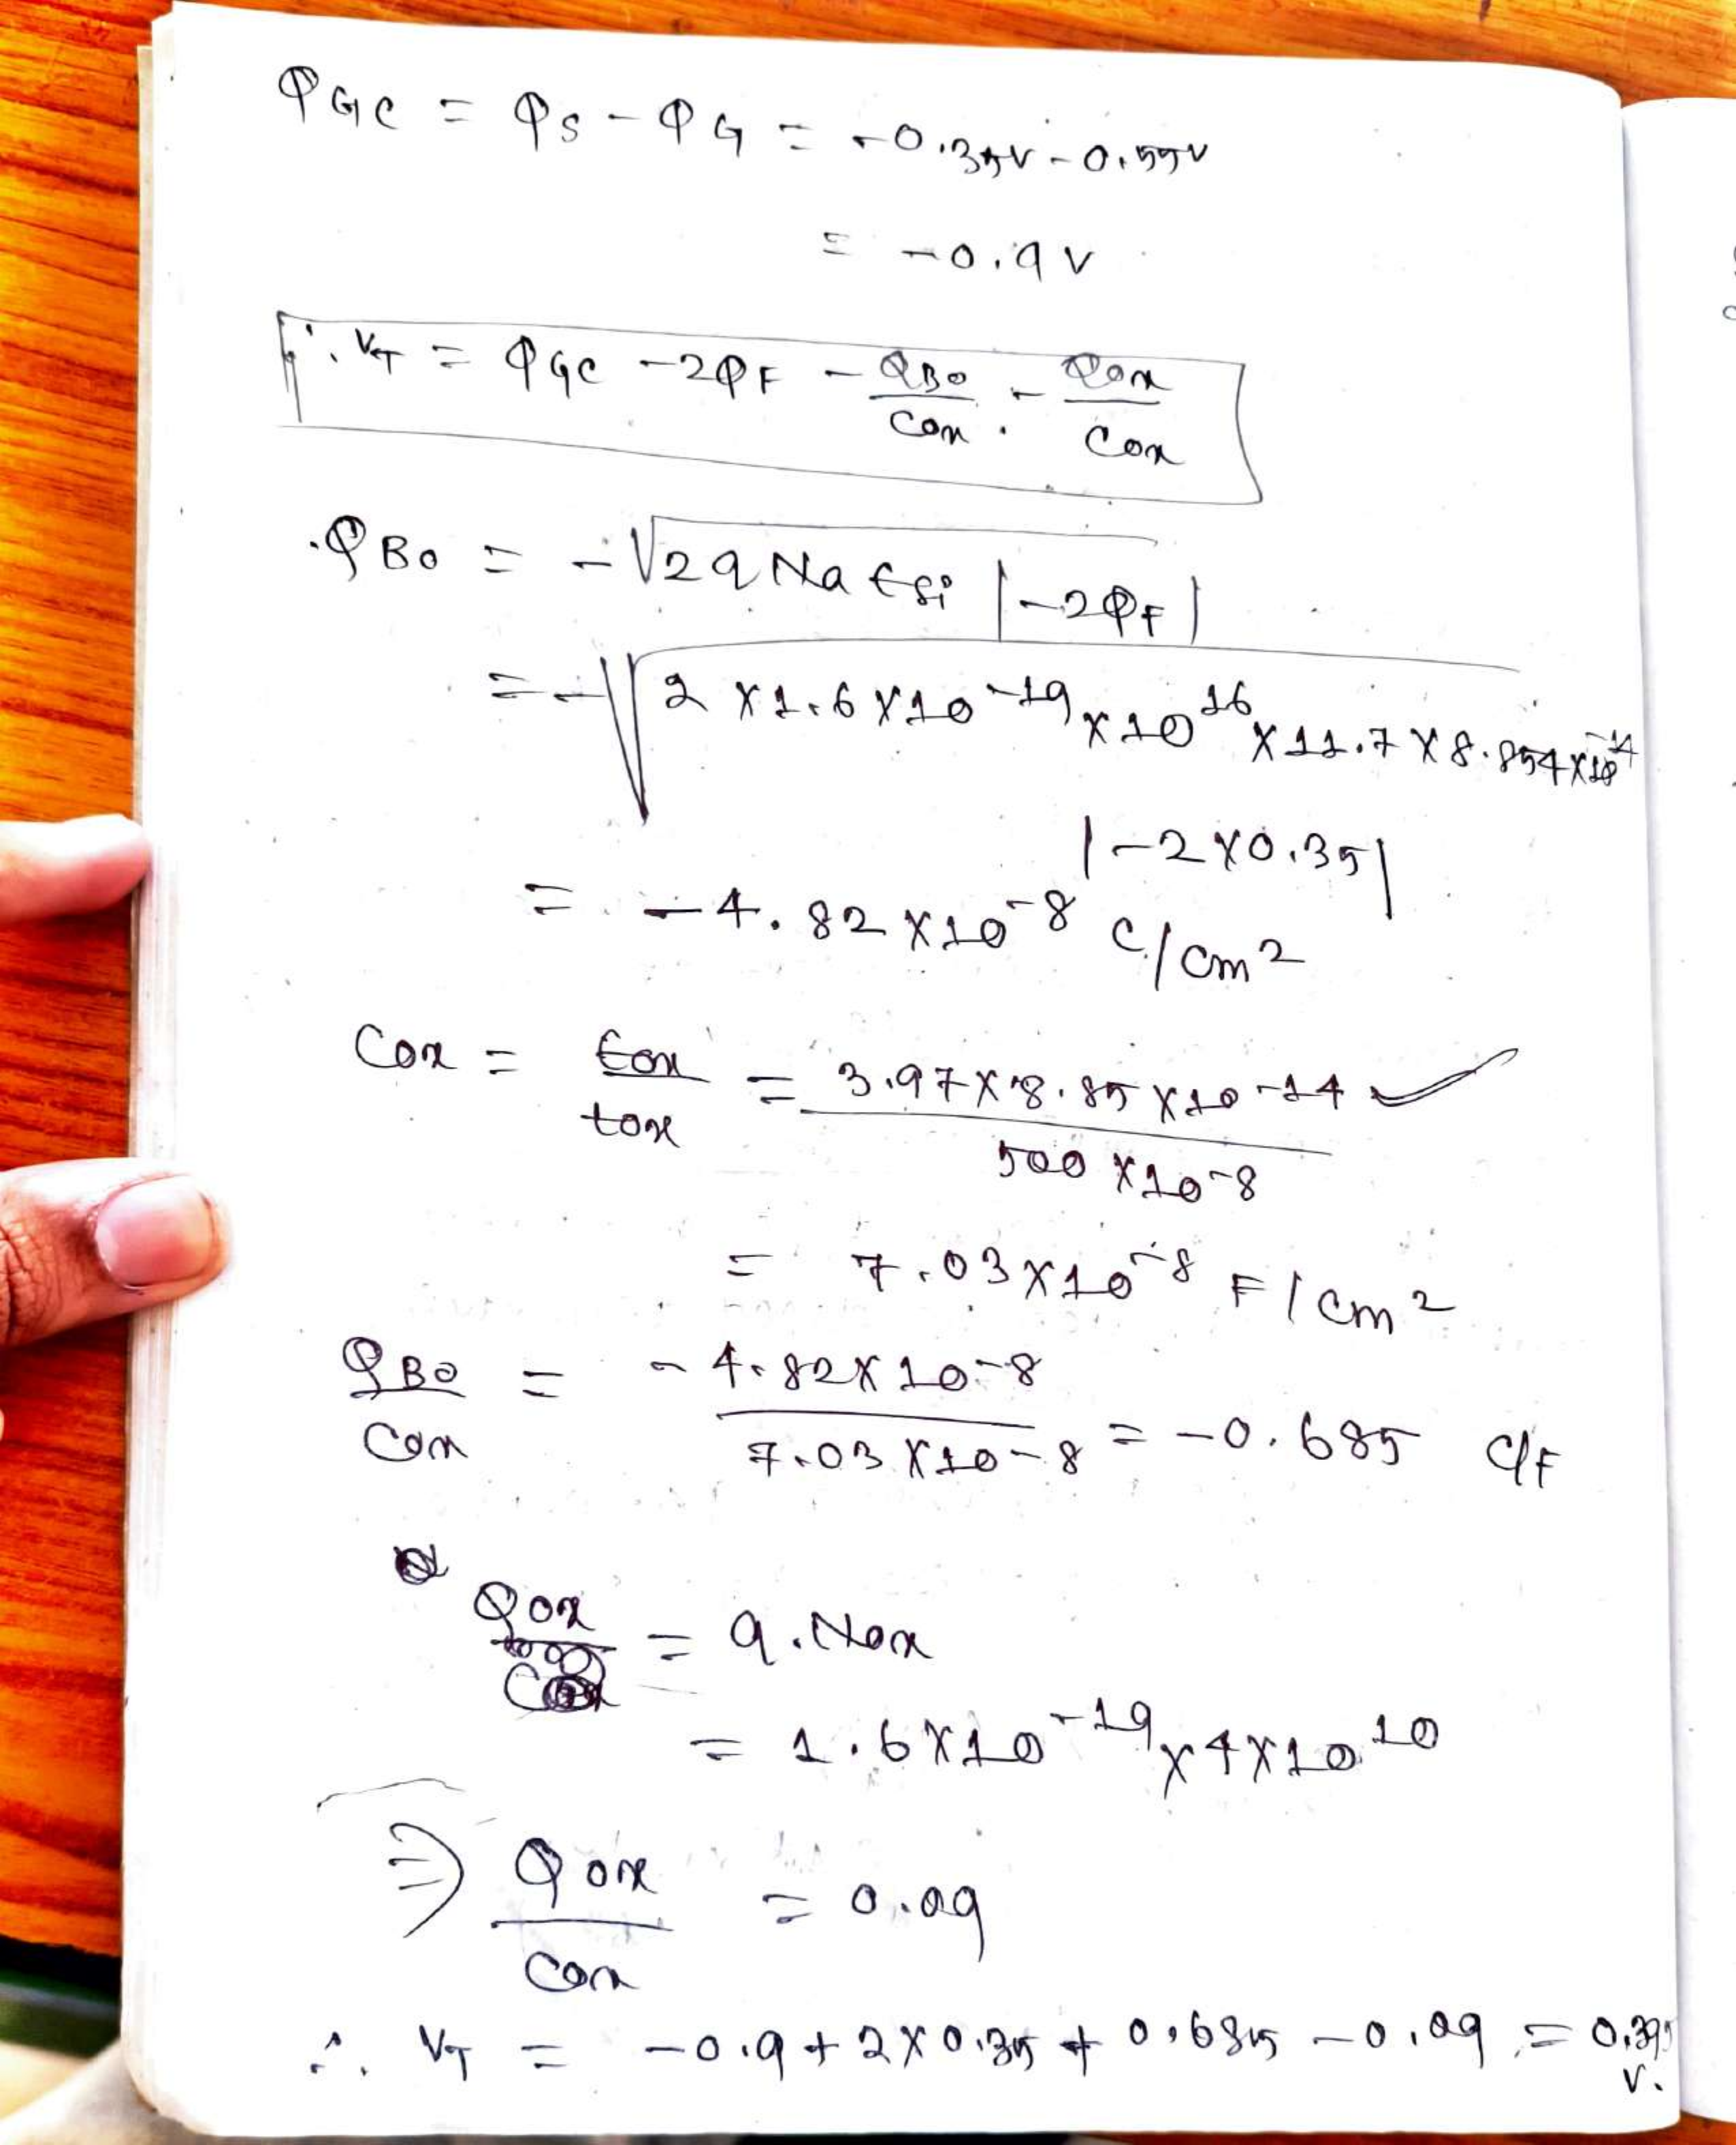 φGC = φS - φG = -0.35V - 0.55V
= -0.9V
∴ VT = φGC - 2φF - QBo/Cox - Qox/Cox
QBo = -√2qNa ϵsi |-2φF|
= -√2 × 1.6 × 10^-19 × 10^16 × 11.7 × 8.854 × 10^-14
|-2 × 0.35|
= -4.82 × 10^-8 C/cm²
Cox = ϵox/tox = 3.97 × 8.85 × 10^-14 / 500 × 10^-8 ✓
= 7.03 × 10^-8 F/cm²
QBo/Cox = -4.82 × 10^-8 / 7.03 × 10^-8 = -0.685 C/F
Qox = q.Nox
= 1.6 × 10^-19 × 4 × 10^10
⇒ Qox/Cox = 0.09
∴ VT = -0.9 + 2 × 0.35 + 0.685 - 0.09 = 0.395
V.